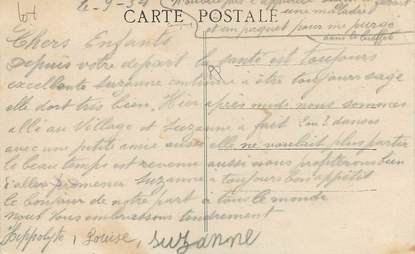 2-9-34
CARTE POSTALE
et un paquet pour me purgé
dans le buffet
Chers Enfants
Depuis votre depart la santé est toujours
excellente Suzanne continue à être toujours sage
elle dort très bien, Hier après midi nous sommes
allé au Village et Suzanne a fait danses
avec une petite amie aussi elle ne voulait plus partir
le beau temps est revenu aussi nous profiterons bien
d'aller promener Suzanne a toujours bon appétit
le bonjour de notre part à tous le monde
Nous Vous embrassons tendrement
Hippolyte, Louise, Suzanne